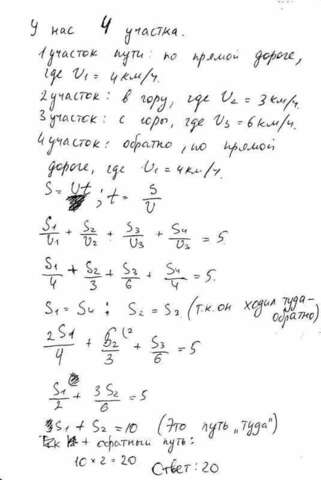 У нас 4 участка.
1 участок пути: по прямой дороге,
где V₁ = 4 км/ч.
2 участок: в гору, где V₂ = 3 км/ч.
3 участок: с горы, где V₃ = 6 км/ч.
4 участок: обратно, по прямой
дороге, где V₁ = 4 км/ч.
S = Vt; t = S/V
S₁/V₁ + S₂/V₂ + S₃/V₃ + S₄/V₄ = 5.
S₁/4 + S₂/3 + S₃/6 + S₄/4 = 5.
S₁ = S₄; S₂ = S₃ (т.к. он ходил туда-
обратно)
2S₁/4 + S₂⁽²/3 + S₃/6 = 5
S₁/2 + 3S₂/6 = 5
S₁ + S₂ = 10 (Это путь „туда")
+ обратный путь:
10 × 2 = 20
Ответ: 20